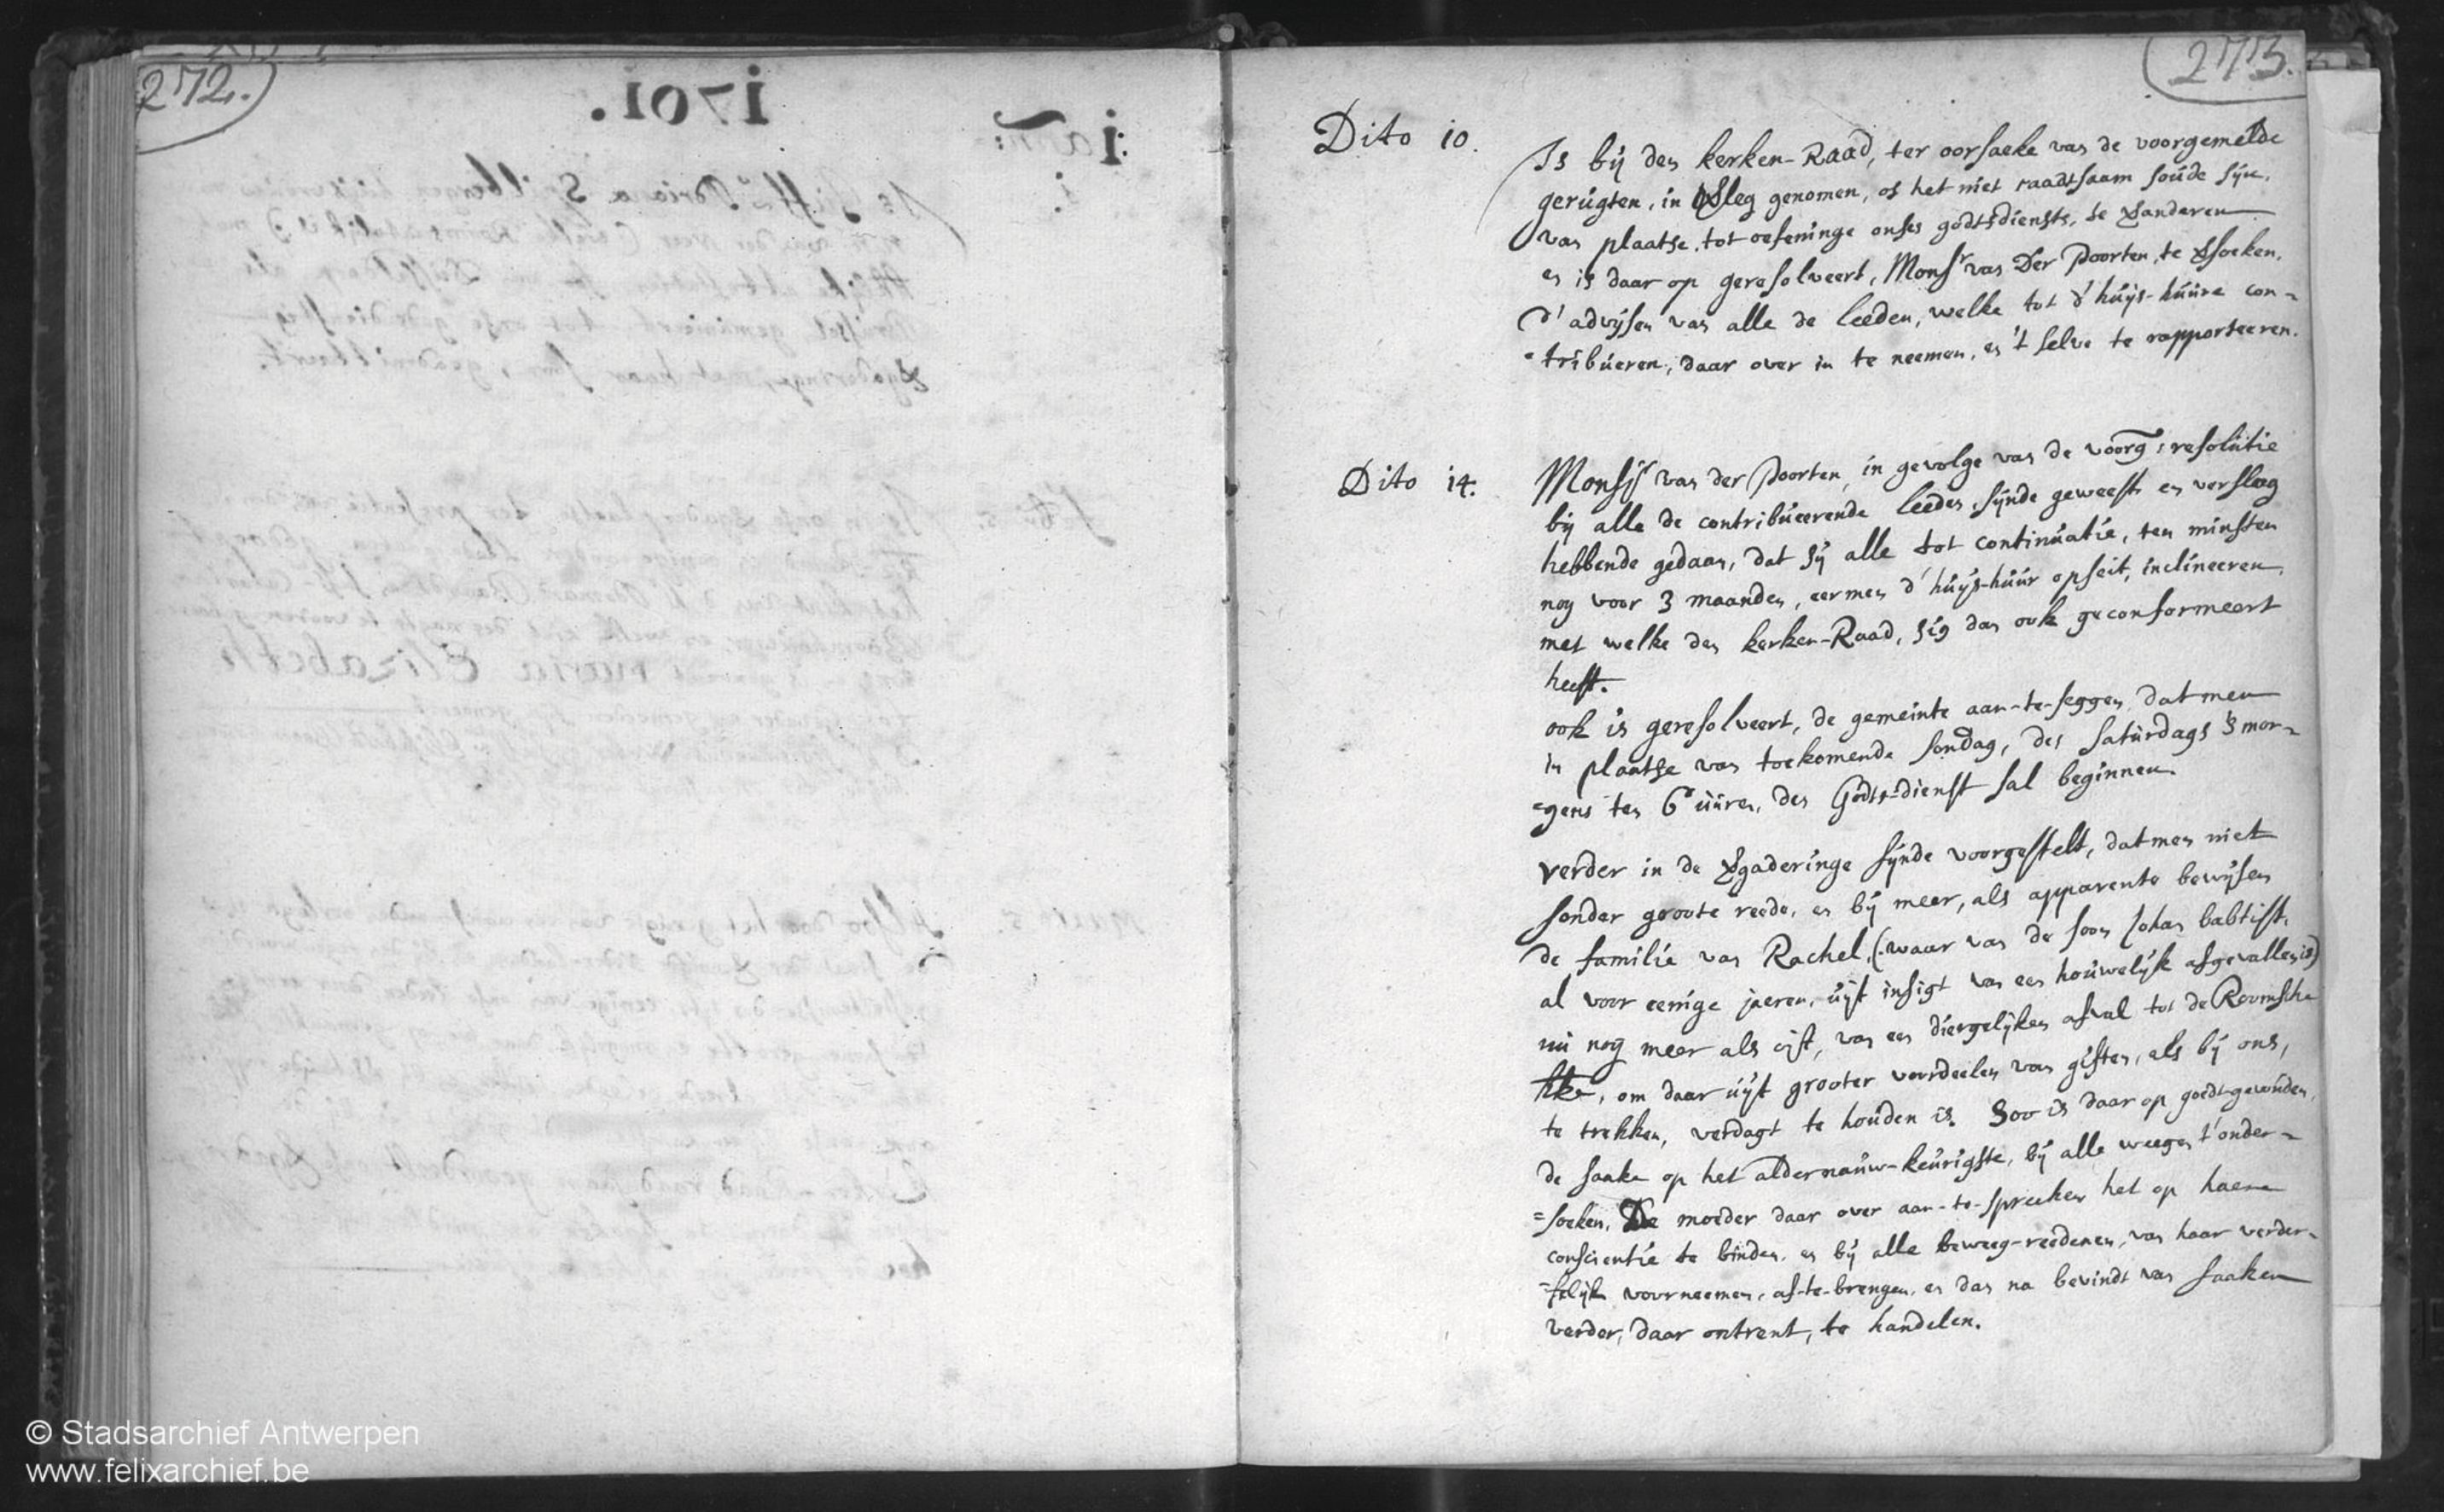 272.
273.
Dito 10.
Is bij den kerken-Raad, ter oorsaeke van de voorgemelde
gerúgten, in genomen, of het niet raadtsaam soúde sijn,
van plaatse, tot oefeninge onses godtsdiensts, te
en is daar op geresolveert, Monsr van Der Poorten, te
d' advijsen van alle de leeden, welke tot d' húijs-húúre con-
-tribúeren, daar over in te neemen, en 't selve te rapporteeren.
Dito 14.
Monsr van der Poorten, in gevolge van de voorg: resolútie
bij alle de contribúeerende leeden, sijnde geweest en verslag
hebbende gedaan, dat sij alle tot continúatie, ten minsten
nog voor 3 maanden, eer men d' húijs-húúr opseit, inclineeren,
met welke den kerken-Raad, sig dan ook geconformeert
heeft.
ook is geresolveert, de gemeinte aan-te-seggen, dat men
in plaatse van toekomende sondag, des satúrdags 's mor-
-gens ten 6 úúren, den Godts-dienst sal beginnen.
verder in de sijnde voorgestelt, dat men niet
sonder groote reede, en bij meer, als apparente bewijsen
de familie van Rachel, (waar van de soon Johan babtist,
al voor eenige jaeren, úijt insigt van een hoúwelijk afgevallen is)
nú nog meer als oijt, van een diergelijken afval tot de Roomsche
, om daar úijt grooter voordeelen van giften, als bij ons,
te trekken, verdagt te hoúden is. Soo is daar op goedt-gevonden,
de saake op het aldernaúw-keúrigste, bij alle weegen t' onder-
-soeken, De moeder daar over aan-te-spreeken het op haere
conscientie te binden, en bij alle beweeg-reedenen, van haar verder-
-felijk voorneemen, af-te-brengen, en dan na bevindt van saaken
verder, daar ontrent, te handelen.
© Stadsarchief Antwerpen
www.felixarchief.be